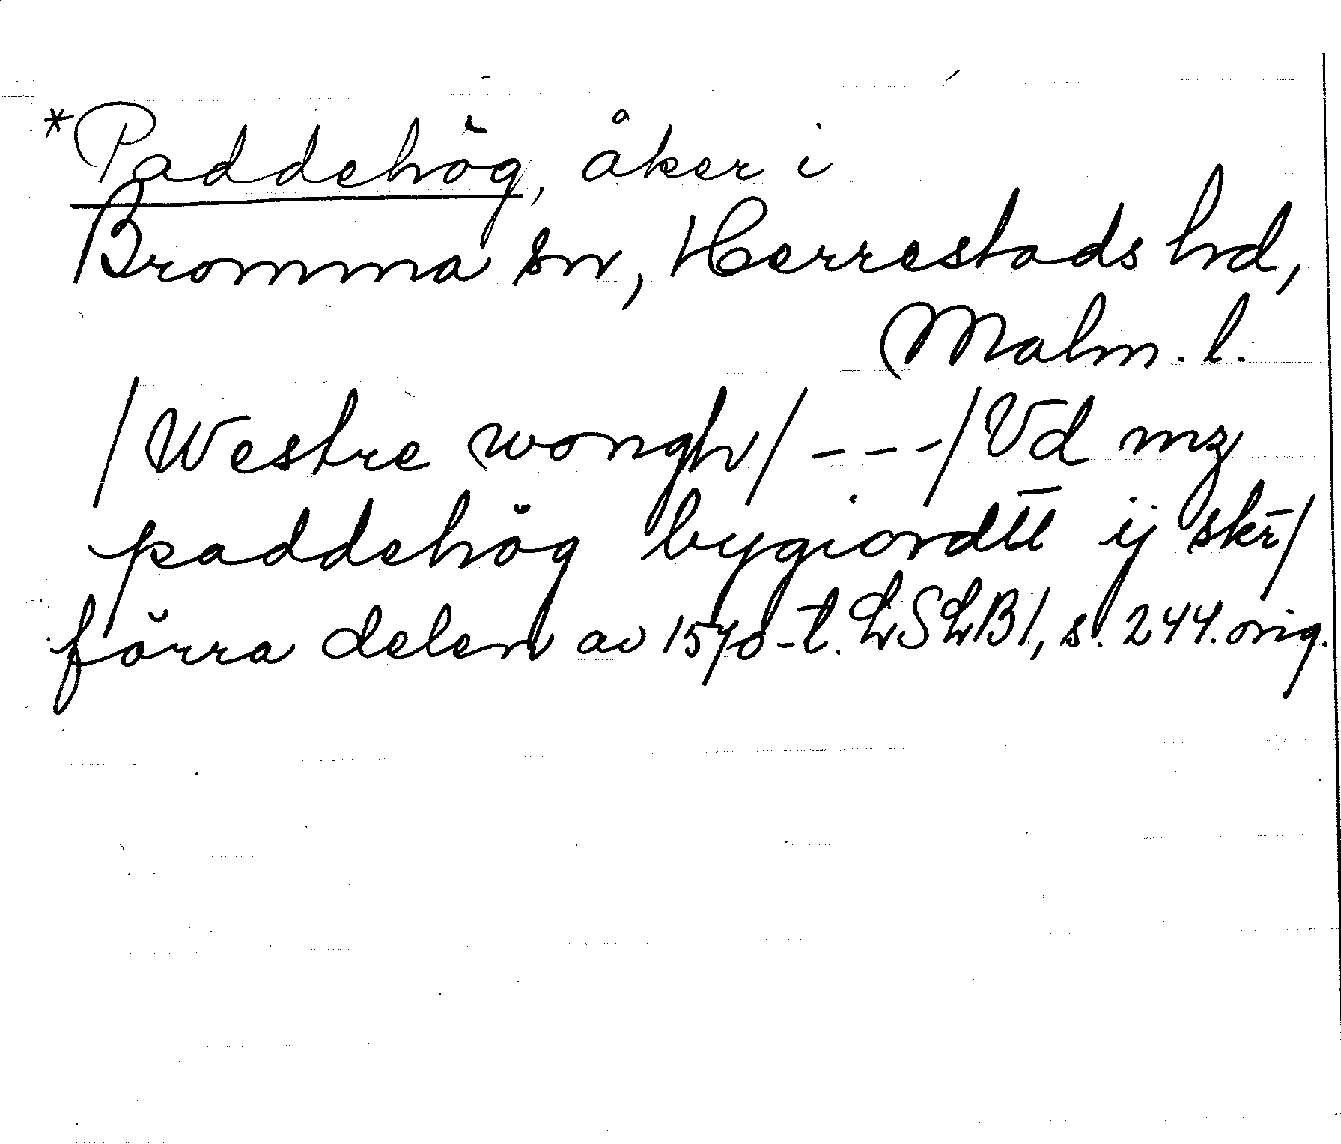 *Paddehög, åker i
Bromma sn, Herrestads hd,
Malm. l.
/Westre wongh/ - - -/Vd mz
paddehög bygiordtt ij skr/
förra delen av 1570-t. LSLB1, s. 244. orig.